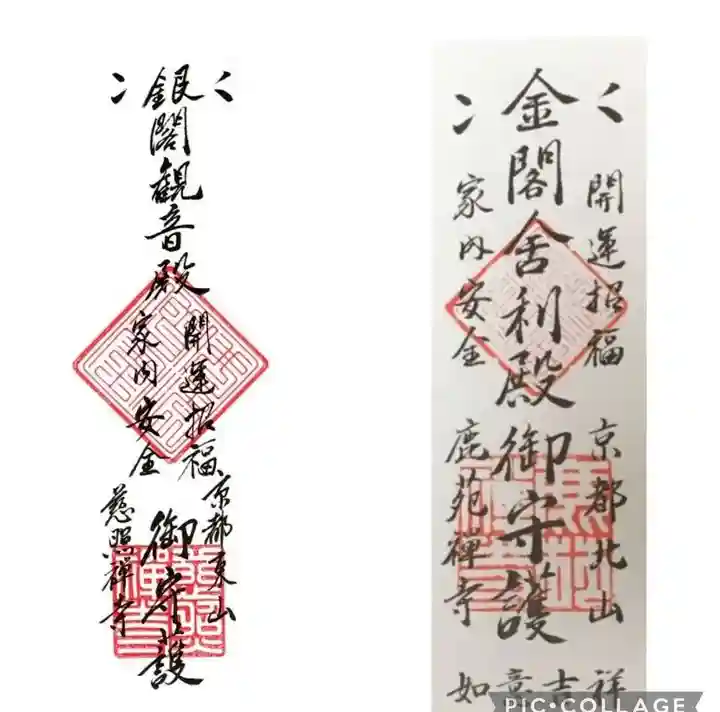 銀閣観音殿
開運招福
家内安全
御守護
京都東山
慈照禅寺
金閣舎利殿御守護
開運招福
家内安全
京都北山
鹿苑禅寺
祥
吉
意
如
PIC•COLLAGE